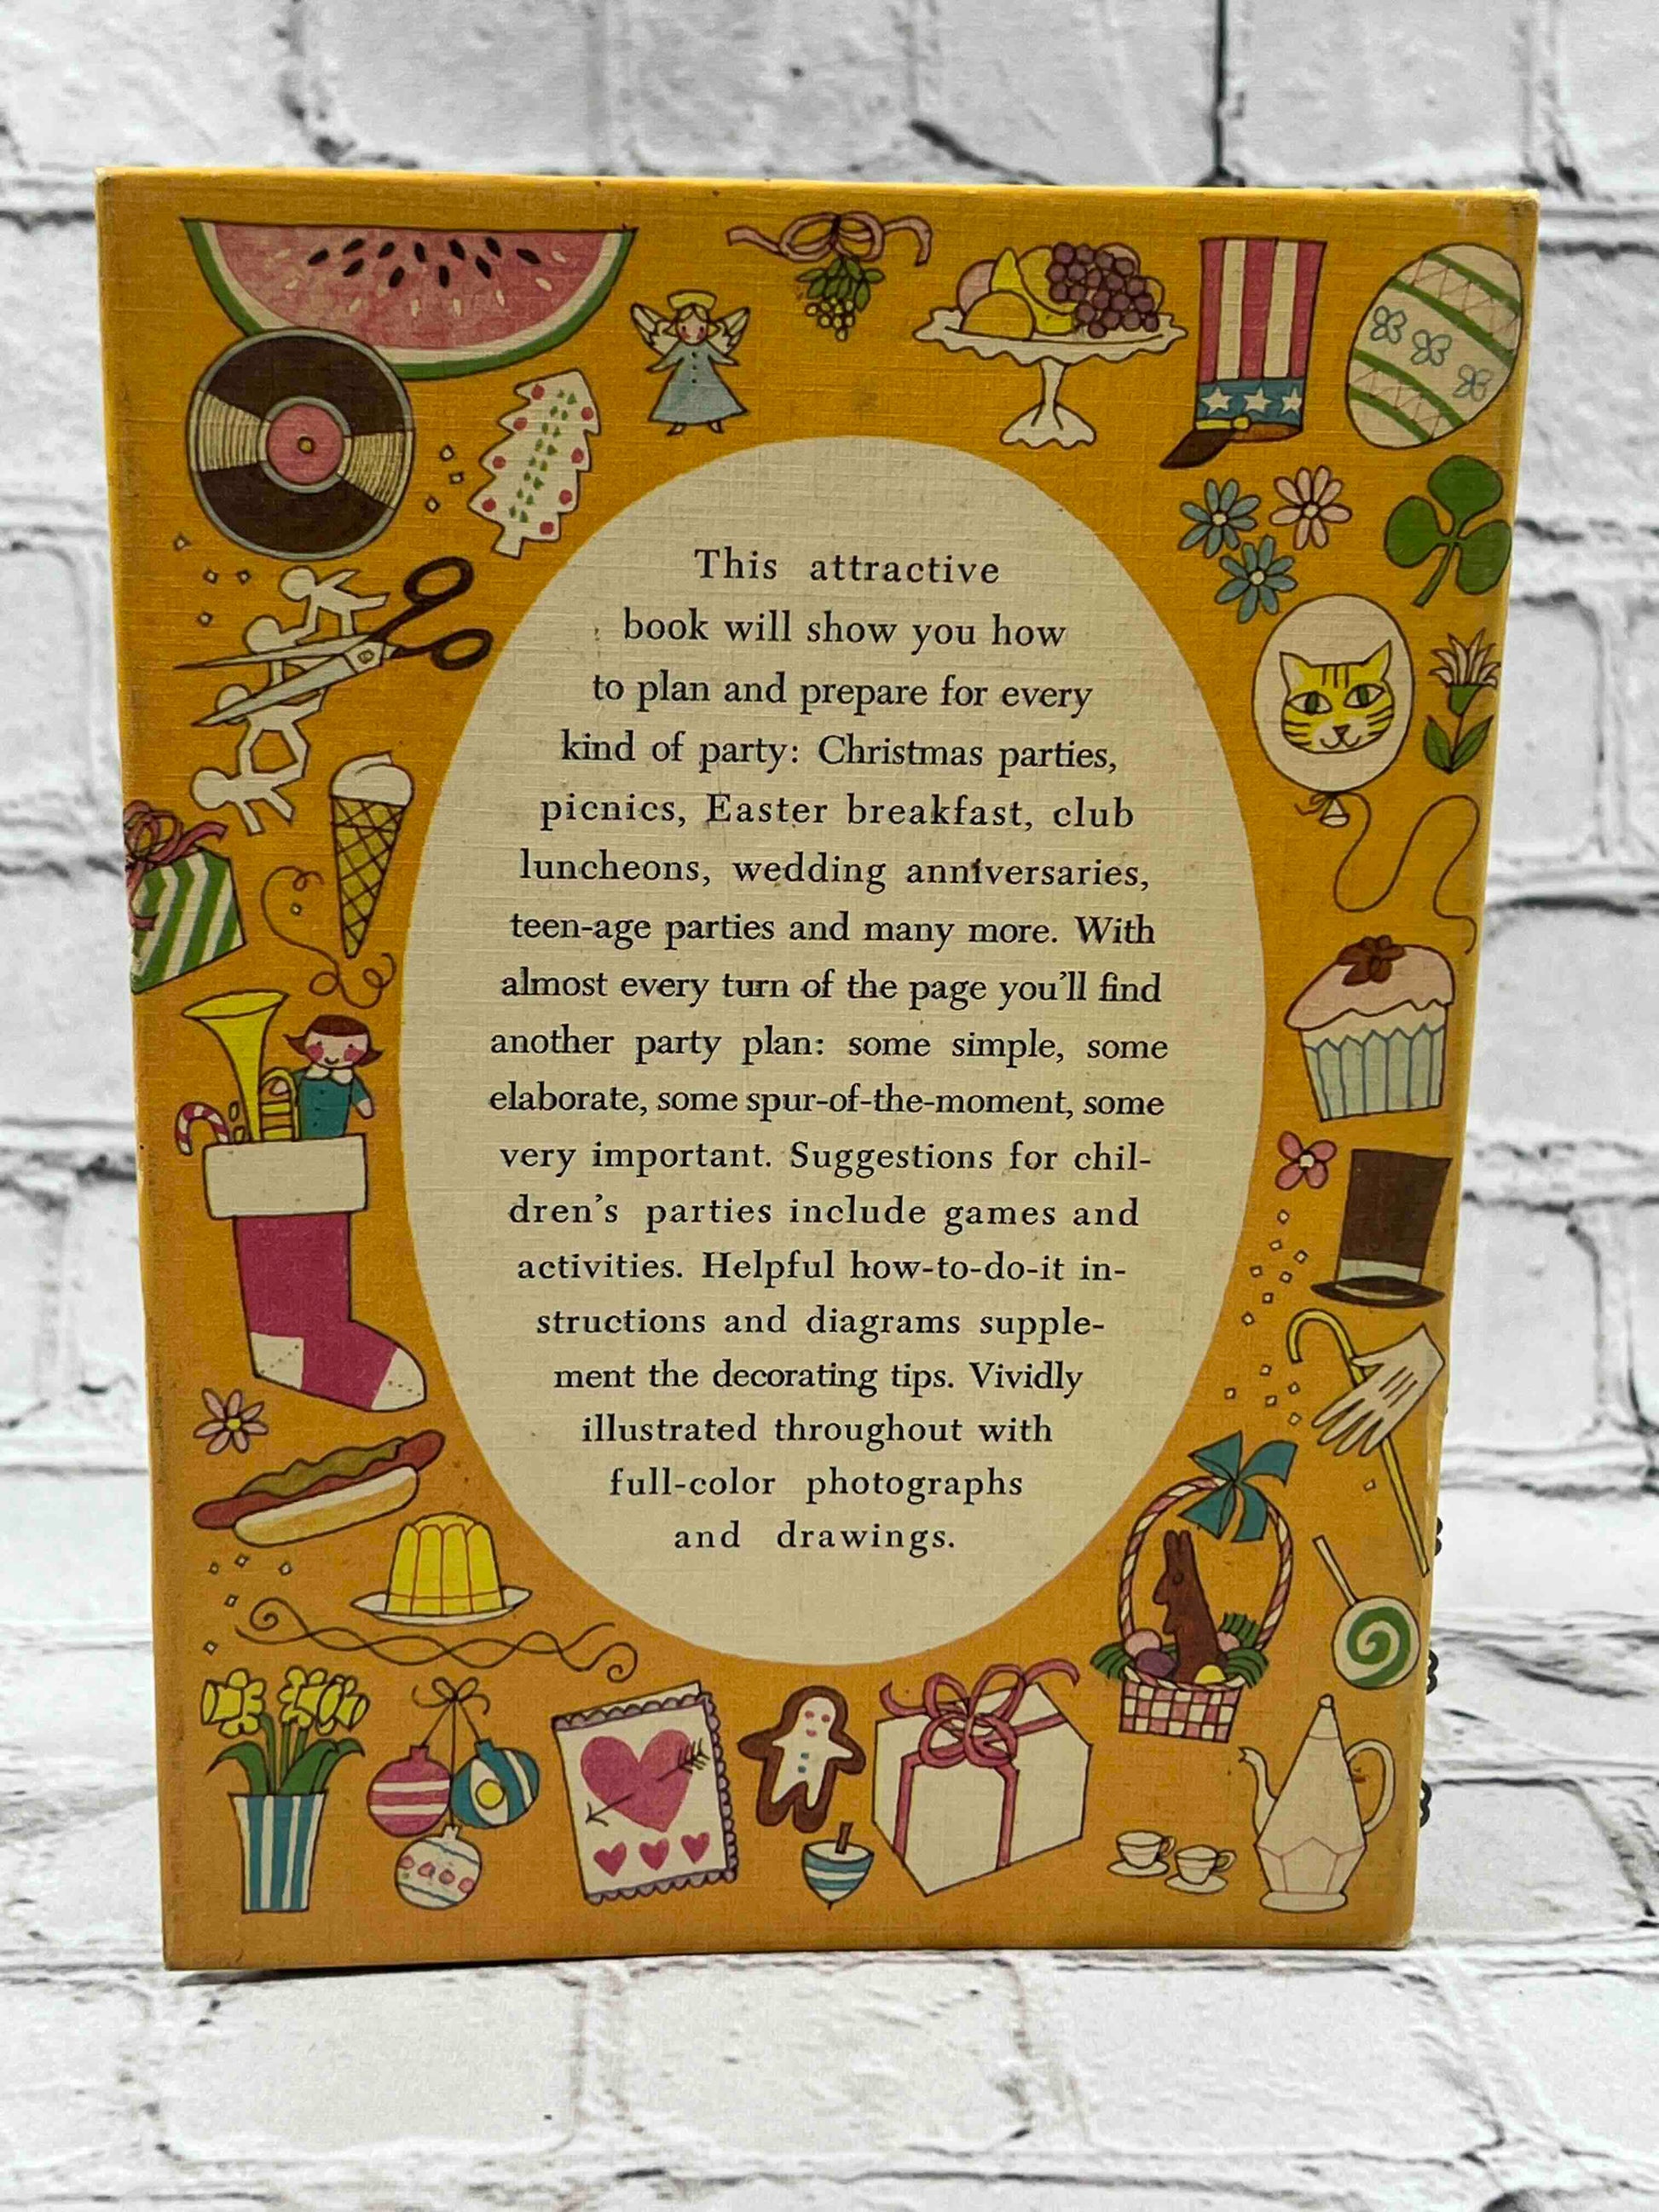 This attractive
book will show you how
to plan and prepare for every
kind of party: Christmas parties,
picnics, Easter breakfast, club
luncheons, wedding anniversaries,
teen-age parties and many more. With
almost every turn of the page you'll find
another party plan: some simple, some
elaborate, some spur-of-the-moment, some
very important. Suggestions for chil-
dren's parties include games and
activities. Helpful how-to-do-it in-
structions and diagrams supple-
ment the decorating tips. Vividly
illustrated throughout with
full-color photographs
and drawings.